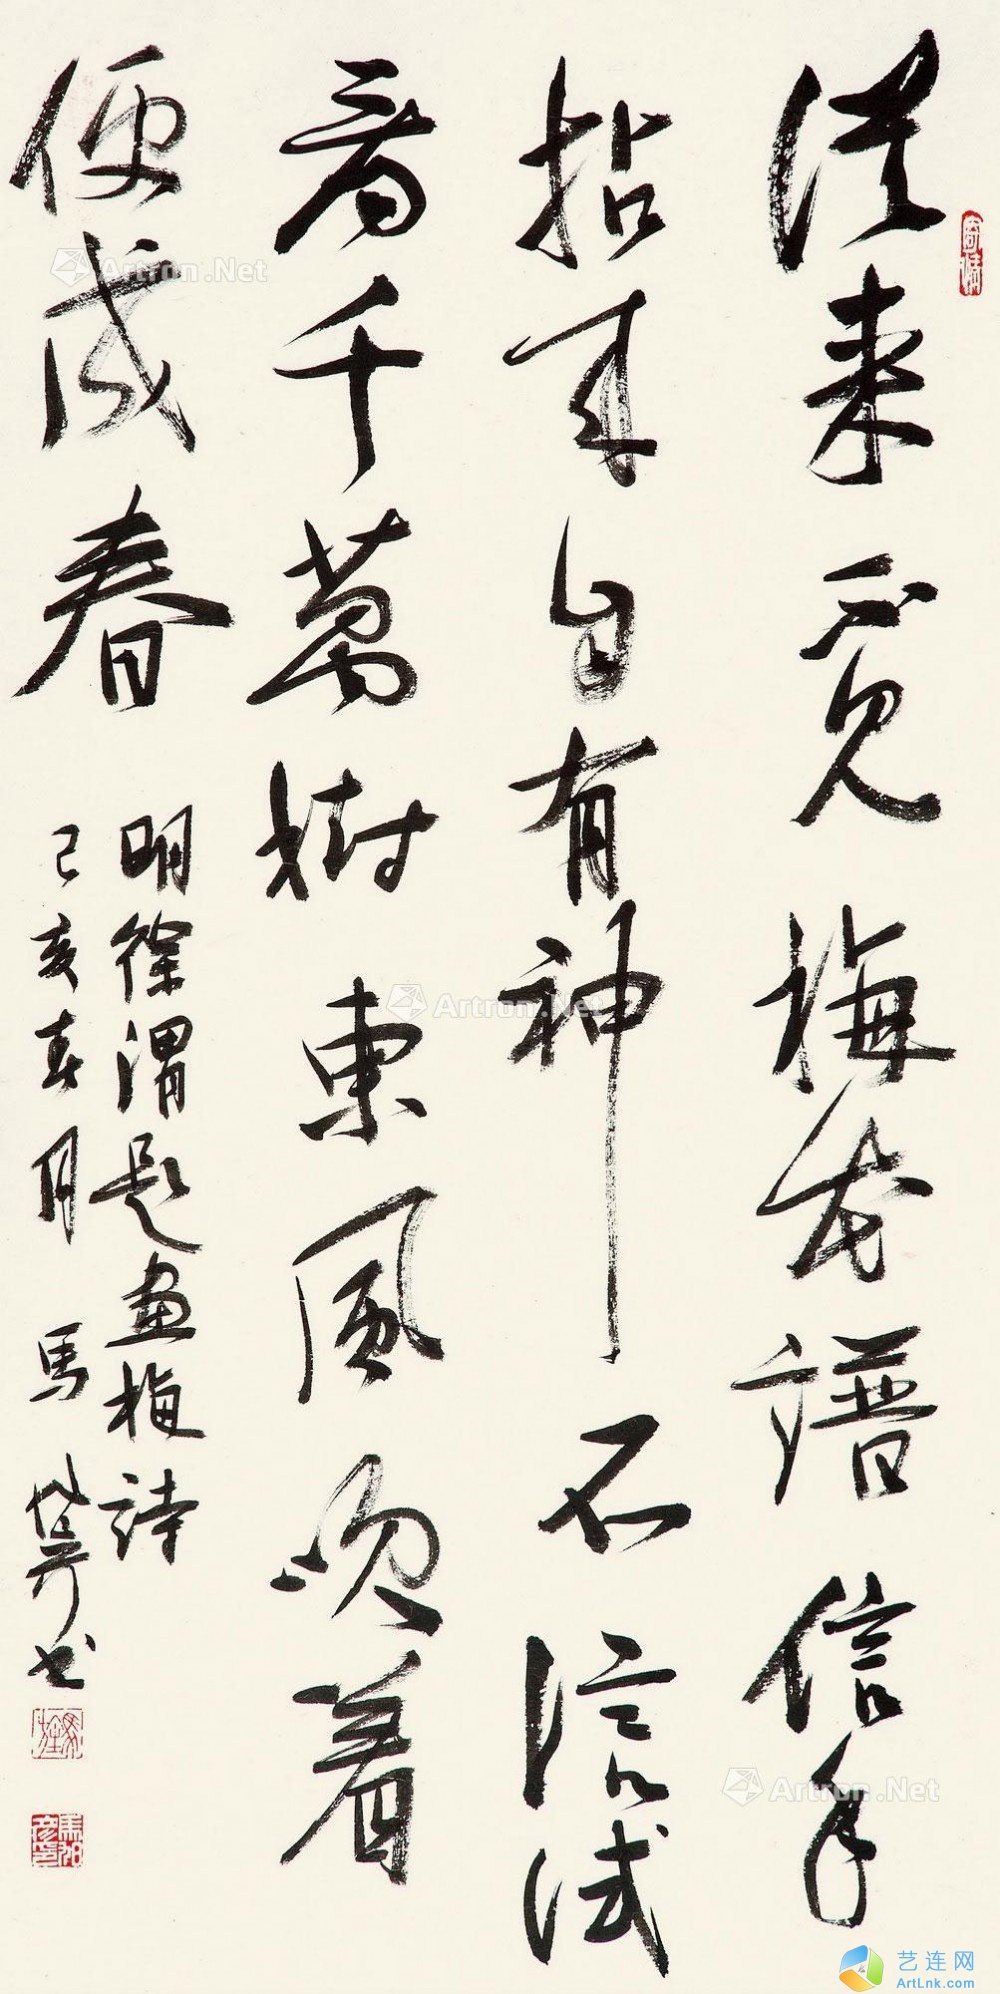 從來不見梅花譜信手
拈来自有神不信試
看千萬樹東風吹着
便成春
明徐渭題畫梅詩
己亥春月馬書
Artron.Net
Artron.Net
Artron.Net
艺连网
ArtLnk.com